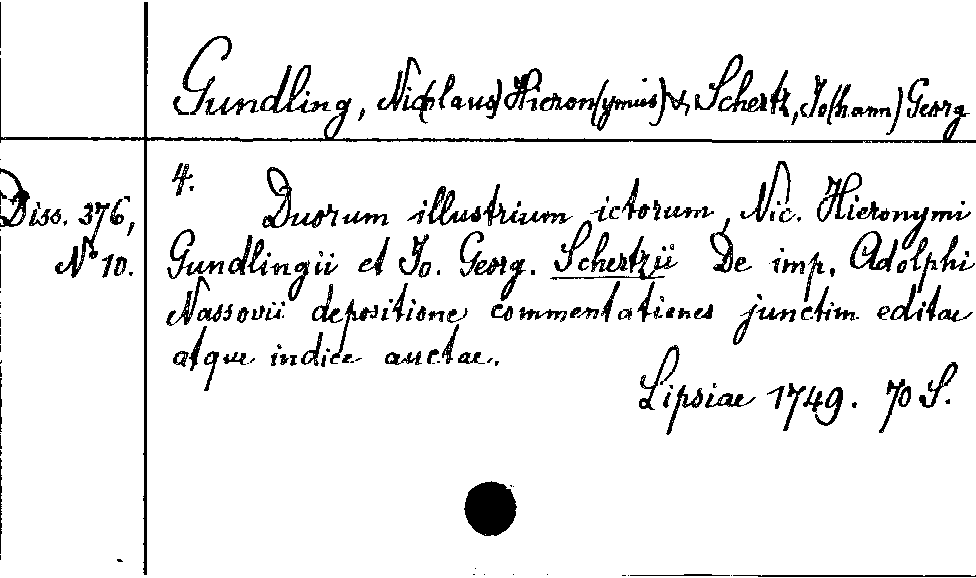 Gundling, Nic(olaus) Hieron(ymus) &, Schertz, Jo(hann) Georg
4.
Diss. 376,
No 10.
Duorum illustrium ictorum, Nic. Hieronymi
Gundlingii et Jo. Georg. Schertzii De imp. Adolphi
Nassovii depositione commentationes junctim editae
atque indice auctae.
Lipsiae 1749. 70 S.